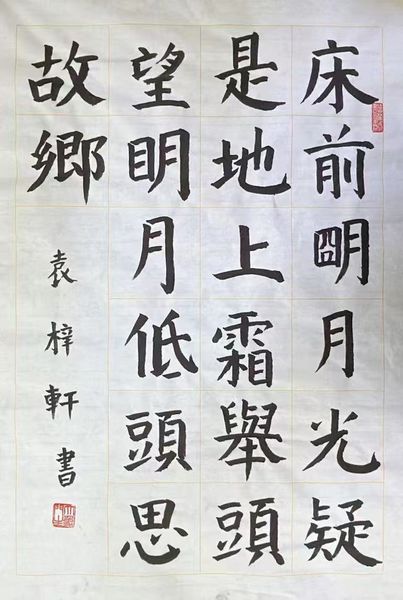 床前朙月光疑
是地上霜舉頭
望眀月低頭思
故鄉
袁梓軒書